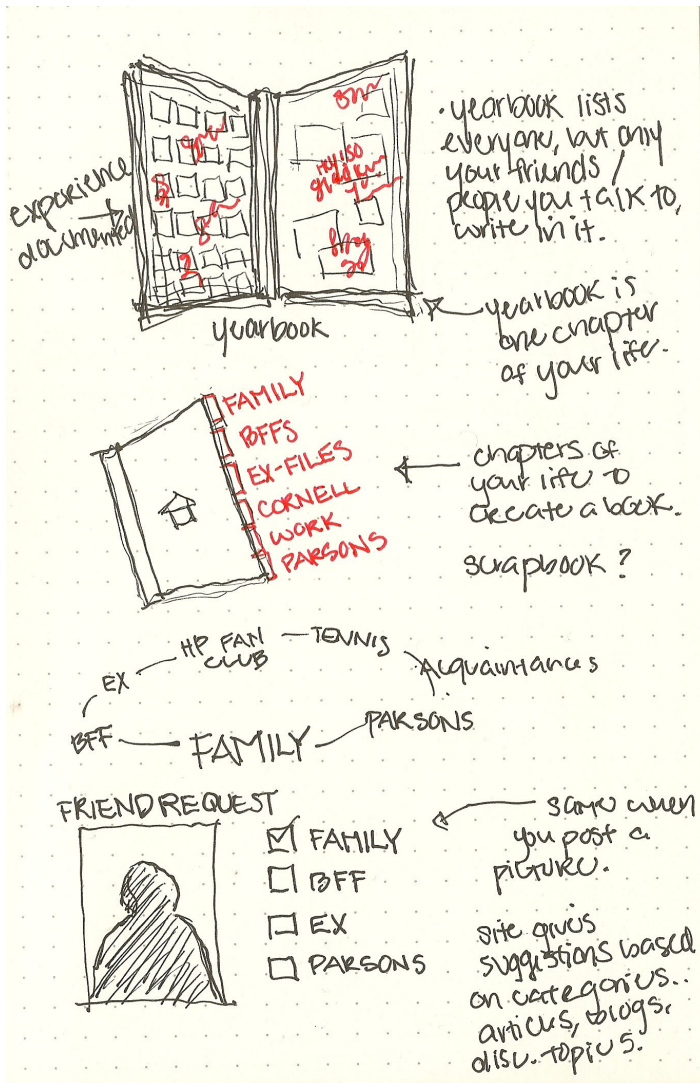 · yearbook lists
everyone, but only
your friends /
people you talk to,
write in it.
experience
documented
HEY! SO
yearbook
yearbook is
one chapter
of your life.
FAMILY
BFFS
EX-FILES
CORNELL
WORK
PARSONS
chapters of
your life to
create a book.
scrapbook?
HP FAN
CLUB
TENNIS
Acquaintances
EX
BFF
FAMILY
PARSONS
FRIEND REQUEST
FAMILY
BFF
EX
PARSONS
same when
you post a
picture.
site gives
suggestions based
on categories..
articles, blogs,
disc. topics.